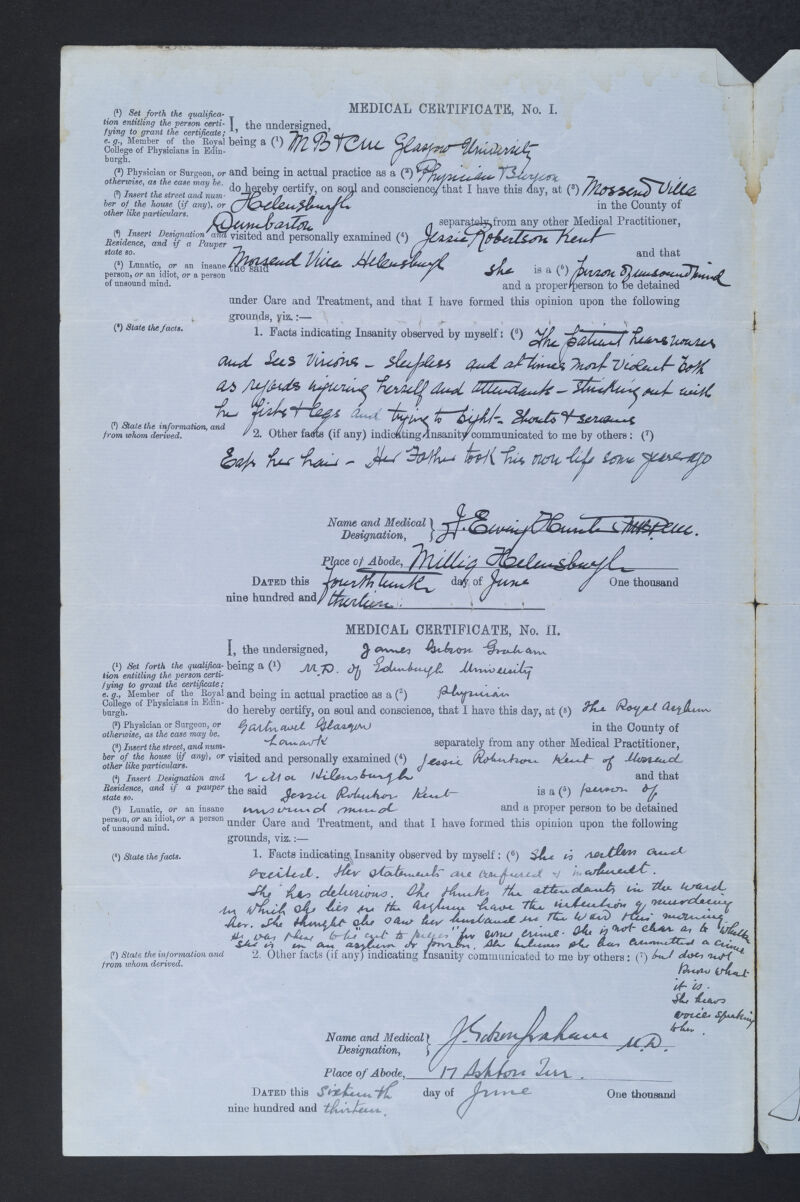 MEDICAL CERTIFICATE, No. I.
(¹) Set forth the qualifica-
tion entitling the person certi-
fying to grant the certificate;
e. g., Member of the Royal
College of Physicians in Edin-
burgh.
I, the undersigned,
being a (¹) M B & CM Glasgow University
(²) Physician or Surgeon, or
otherwise, as the case may be.
and being in actual practice as a (²) Physician & Surgeon
(³) Insert the street and num-
ber of the house (if any), or
other like particulars.
do hereby certify, on soul and conscience, that I have this day, at (³) Mossend Villa
Helensburgh in the County of
Dumbarton separately from any other Medical Practitioner,
(⁴) Insert Designation and
Residence, and if a Pauper
state so.
visited and personally examined (⁴) Jessie Robertson Kent
Mossend Villa Helensburgh and that
(⁵) Lunatic, or an insane
person, or an idiot, or a person
of unsound mind.
the said she is a (⁵) person of unsound mind
and a proper person to be detained
under Care and Treatment, and that I have formed this opinion upon the following
grounds, viz.:—
(⁶) State the facts.
1. Facts indicating Insanity observed by myself: (⁶) The patient hears noises
and sees visions – sleepless and at times most violent both
as regards injuring herself and attendants – striking out with
her fists & legs and trying to bight – shouts & screams
(⁷) State the information, and
from whom derived.
2. Other facts (if any) indicating Insanity communicated to me by others: (⁷)
Eats her hair – Her Father took his own life some years ago
Name and Medical
Designation, J. Ewing Hunter MB. CM.
Place of Abode, Millig Helensburgh
DATED this fourteenth day of June One thousand
nine hundred and thirteen.
MEDICAL CERTIFICATE, No. II.
I, the undersigned, James Gibson Graham
(¹) Set forth the qualifica-
tion entitling the person certi-
fying to grant the certificate;
e. g., Member of the Royal
College of Physicians in Edin-
burgh.
being a (¹) M.D. of Edinburgh University
and being in actual practice as a (²) Physician
(²) Physician or Surgeon, or
otherwise, as the case may be.
do hereby certify, on soul and conscience, that I have this day, at (³) the Royal Asylum
Gartnavel Glasgow in the County of
(³) Insert the street, and num-
ber of the house (if any), or
other like particulars.
Lanark separately from any other Medical Practitioner,
visited and personally examined (⁴) Jessie Robertson Kent of Mossend
(⁴) Insert Designation and
Residence, and if a pauper
state so.
Villa Hilensburgh and that
the said Jessie Robertson Kent is a (⁵) person of
(⁵) Lunatic, or an insane
person, or an idiot, or a person
of unsound mind.
unsound mind and a proper person to be detained
under Care and Treatment, and that I have formed this opinion upon the following
grounds, viz.:—
(⁶) State the facts.
1. Facts indicating Insanity observed by myself: (⁶) She is restless and
excited. Her statements are confused & incoherent.
She has delusions. She thinks the attendants in the ward
in which she lies in the asylum have the intention of murdering
her. She thought she saw her husband in the ward this morning
He was there to be "cut to pieces" for some crime. She is not clear as to whether
she is in an asylum or prison. She believes she has committed a crime
(⁷) State the information and
from whom derived.
2. Other facts (if any) indicating Insanity communicated to me by others: (⁷) but does not
know what
it is.
She hears
voices speaking
to her.
Name and Medical
Designation, J. Gibson Graham M.D.
Place of Abode, 17 Ashton Terr.
DATED this sixteenth day of June One thousand
nine hundred and thirteen.